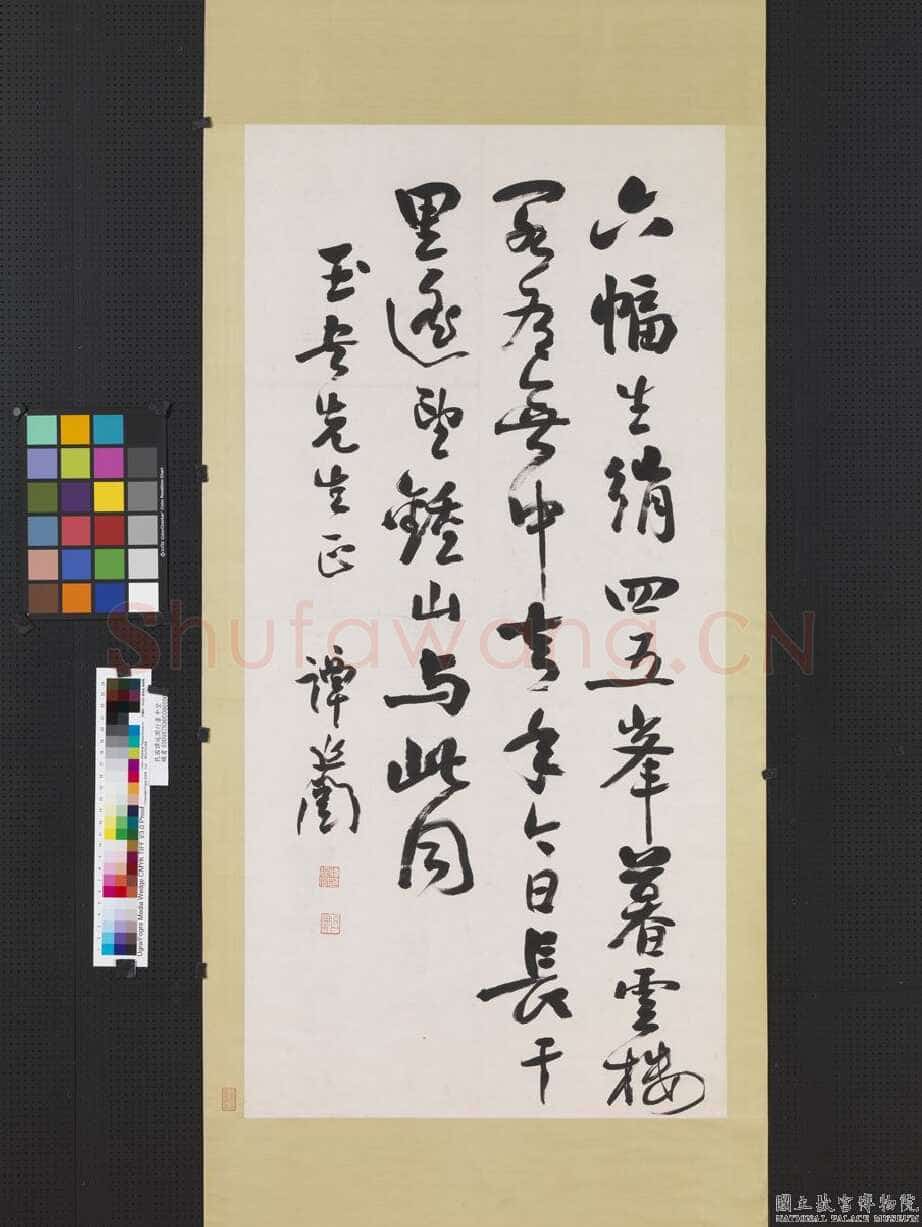 六幅生綃四五峯暮雲樓
閣有無中去年今日長干
里遙望鍾山与此同
玉 先生正 譚延闓
Shufawang.CN
國立故宮博物院
NATIONAL PALACE MUSEUM